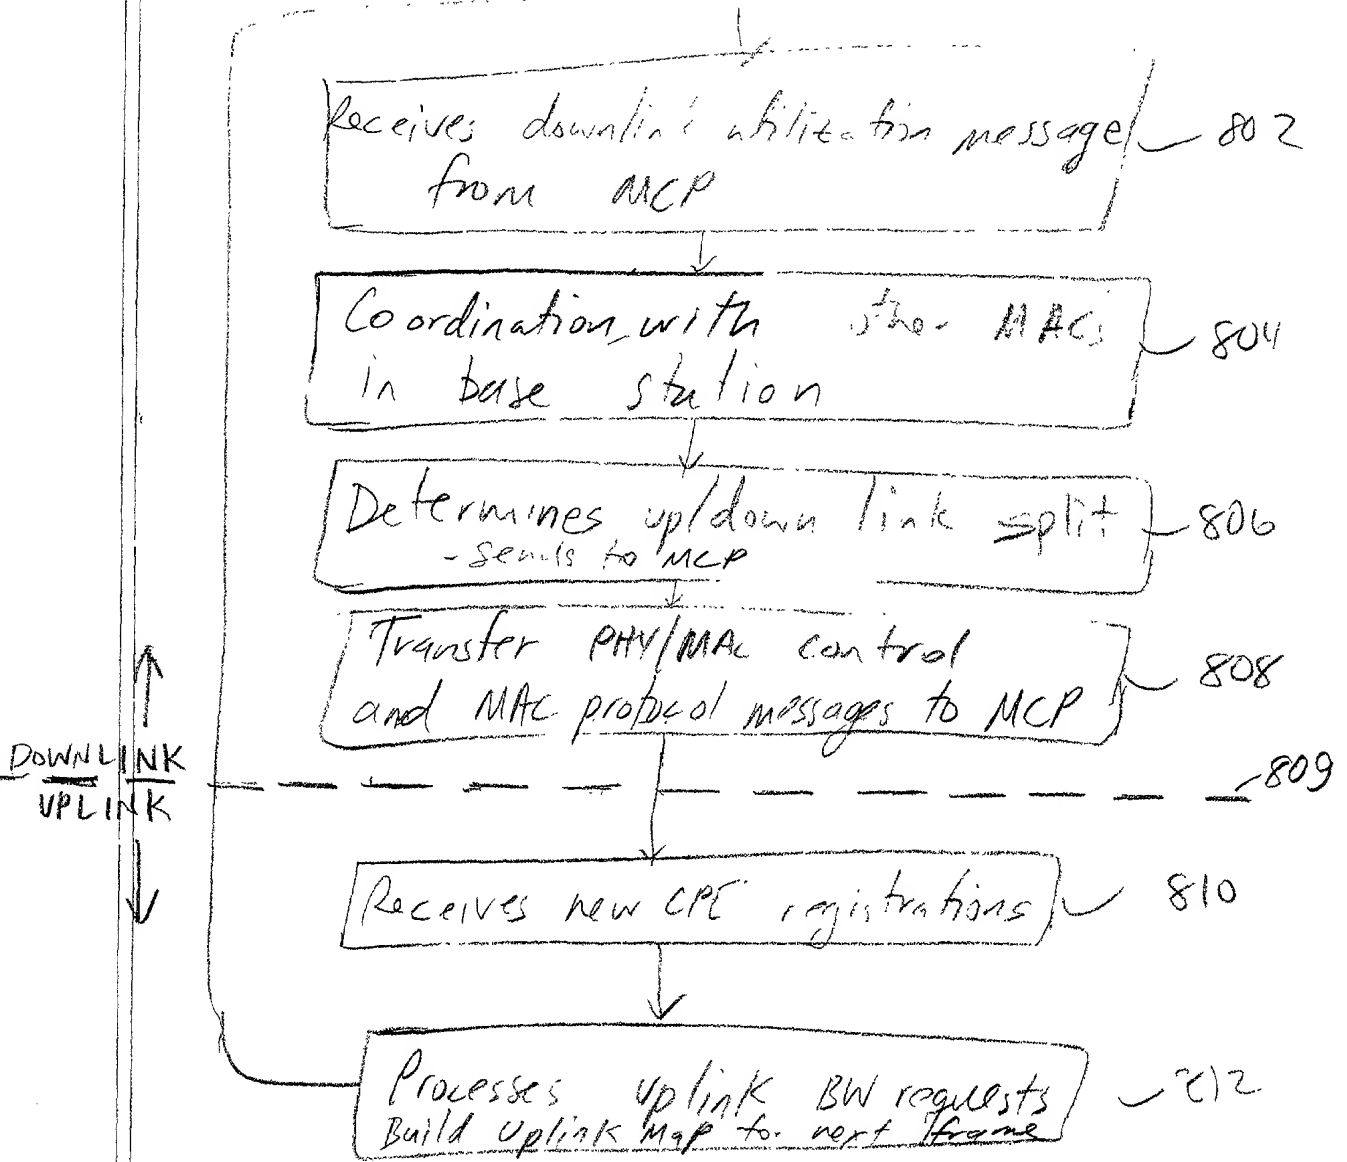 Receives downlink utilization message
from MCP
802
Coordination with other MACs
in base station
804
Determines up/down link split
- sends to MCP
806
Transfer PHY/MAC control
and MAC protocol messages to MCP
808
DOWNLINK
UPLINK
809
Receives new CPE registrations
810
Processes uplink BW requests
Build Uplink Map for next frame
812